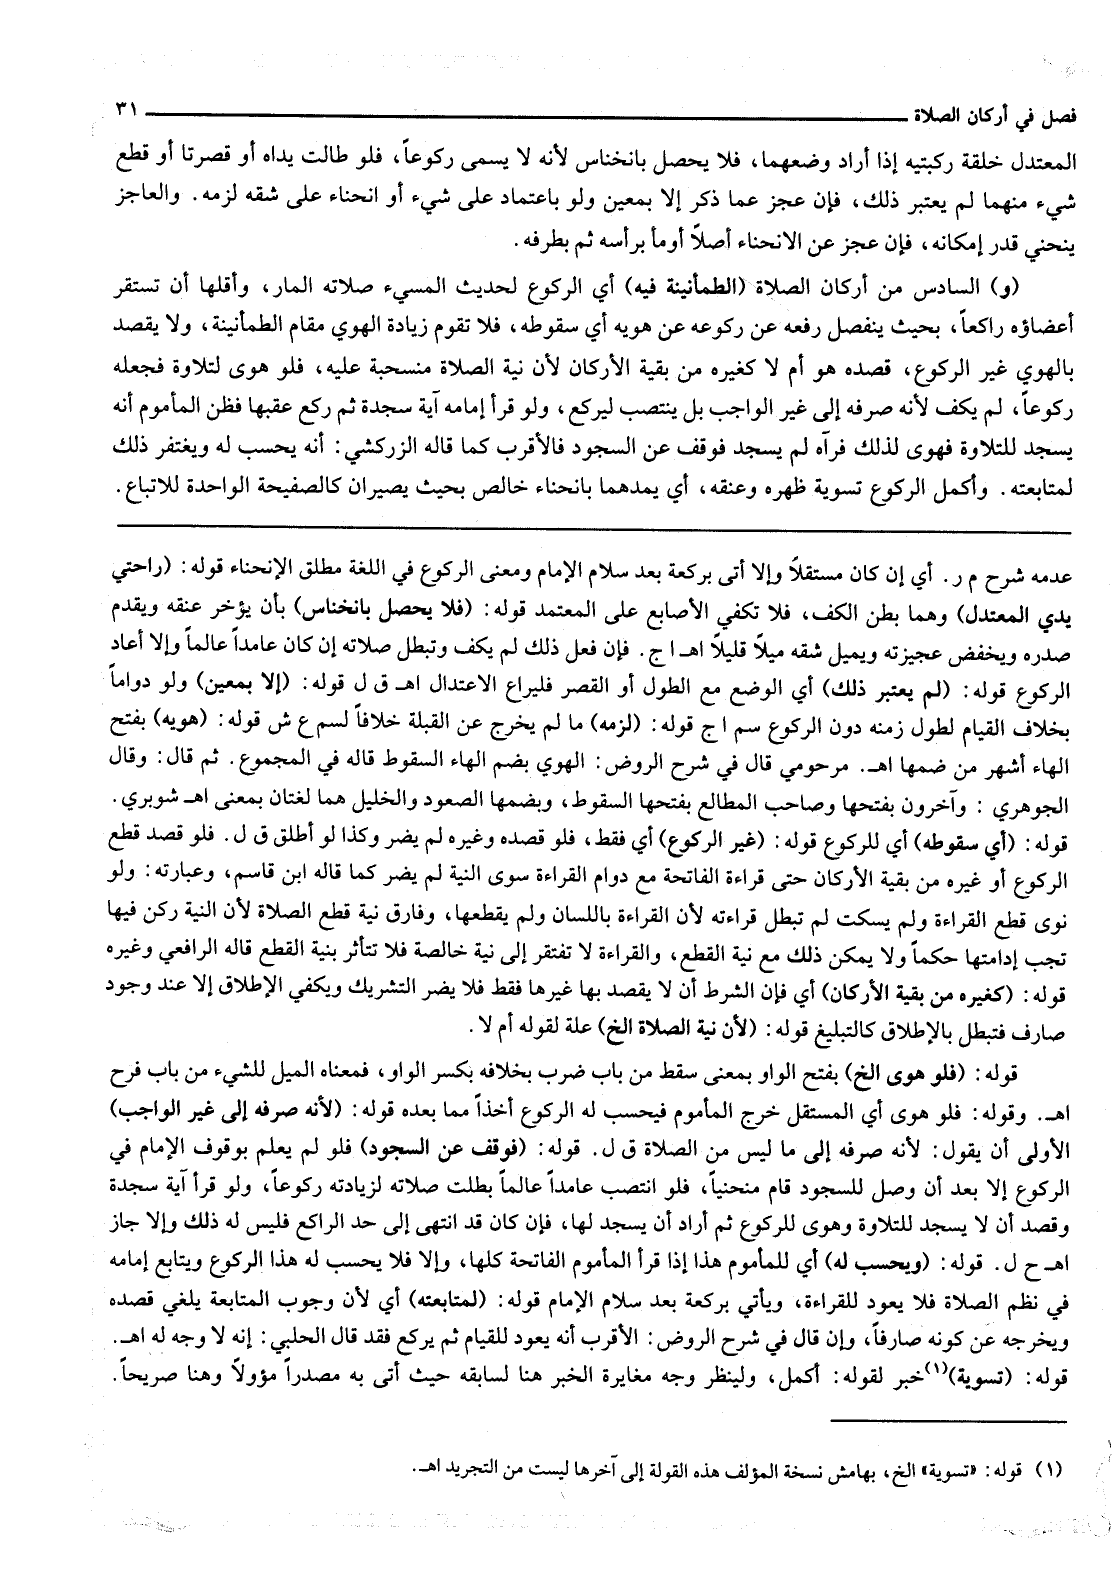 فصل في أركان الصلاة ٣١
المعتدل خلقة ركبتيه إذا أراد وضعهما، فلا يحصل بانخناس لأنه لا يسمى ركوعاً، فلو طالت يداه أو قصرتا أو قطع
شيء منهما لم يعتبر ذلك، فإن عجز عما ذكر إلا بمعين ولو باعتماد على شيء أو انحناء على شقه لزمه. والعاجز
ينحني قدر إمكانه، فإن عجز عن الانحناء أصلاً أومأ برأسه ثم بطرفه.
(و) السادس من أركان الصلاة (الطمأنينة فيه) أي الركوع لحديث المسيء صلاته المار، وأقلها أن تستقر
أعضاؤه راكعاً، بحيث ينفصل رفعه عن ركوعه عن هويه أي سقوطه، فلا تقوم زيادة الهوي مقام الطمأنينة، ولا يقصد
بالهوي غير الركوع، قصده هو أم لا كغيره من بقية الأركان لأن نية الصلاة منسحبة عليه، فلو هوى لتلاوة فجعله
ركوعاً، لم يكف لأنه صرفه إلى غير الواجب بل ينتصب ليركع، ولو قرأ إمامه آية سجدة ثم ركع عقبها فظن المأموم أنه
يسجد للتلاوة فهوى لذلك فرآه لم يسجد فوقف عن السجود فالأقرب كما قاله الزركشي: أنه يحسب له ويغتفر ذلك
لمتابعته. وأكمل الركوع تسوية ظهره وعنقه، أي يمدهما بانحناء خالص بحيث يصيران كالصفيحة الواحدة للاتباع.
عدمه شرح م ر. أي إن كان مستقلاً وإلا أتى بركعة بعد سلام الإمام ومعنى الركوع في اللغة مطلق الإنحناء قوله: (راحتي
يدي المعتدل) وهما بطن الكف، فلا تكفي الأصابع على المعتمد قوله: (فلا يحصل بانخناس) بأن يؤخر عنقه ويقدم
صدره ويخفض عجيزته ويميل شقه ميلاً قليلاً اهـ ا ج. فإن فعل ذلك لم يكف وتبطل صلاته إن كان عامداً عالماً وإلا أعاد
الركوع قوله: (لم يعتبر ذلك) أي الوضع مع الطول أو القصر فليراع الاعتدال اهـ ق ل قوله: (إلا بمعين) ولو دواماً
بخلاف القيام لطول زمنه دون الركوع سم ا ج قوله: (لزمه) ما لم يخرج عن القبلة خلافاً لسم ع ش قوله: (هويه) بفتح
الهاء أشهر من ضمها اهـ. مرحومي قال في شرح الروض: الهوي بضم الهاء السقوط قاله في المجموع. ثم قال: وقال
الجوهري : وآخرون بفتحها وصاحب المطالع بفتحها السقوط، وبضمها الصعود والخليل هما لغتان بمعنى اهـ شوبري.
قوله: (أي سقوطه) أي للركوع قوله: (غير الركوع) أي فقط، فلو قصده وغيره لم يضر وكذا لو أطلق ق ل. فلو قصد قطع
الركوع أو غيره من بقية الأركان حتى قراءة الفاتحة مع دوام القراءة سوى النية لم يضر كما قاله ابن قاسم، وعبارته: ولو
نوى قطع القراءة ولم يسكت لم تبطل قراءته لأن القراءة باللسان ولم يقطعها، وفارق نية قطع الصلاة لأن النية ركن فيها
تجب إدامتها حكماً ولا يمكن ذلك مع نية القطع، والقراءة لا تفتقر إلى نية خالصة فلا تتأثر بنية القطع قاله الرافعي وغيره
قوله: (كغيره من بقية الأركان) أي فإن الشرط أن لا يقصد بها غيرها فقط فلا يضر التشريك ويكفي الإطلاق إلا عند وجود
صارف فتبطل بالإطلاق كالتبليغ قوله: (لأن نية الصلاة الخ) علة لقوله أم لا.
قوله: (فلو هوى الخ) بفتح الواو بمعنى سقط من باب ضرب بخلافه بكسر الواو، فمعناه الميل للشيء من باب فرح
اهـ. وقوله: فلو هوى أي المستقل خرج المأموم فيحسب له الركوع أخذاً مما بعده قوله: (لأنه صرفه إلى غير الواجب)
الأولى أن يقول: لأنه صرفه إلى ما ليس من الصلاة ق ل. قوله: (فوقف عن السجود) فلو لم يعلم بوقوف الإمام في
الركوع إلا بعد أن وصل للسجود قام منحنياً، فلو انتصب عامداً عالماً بطلت صلاته لزيادته ركوعاً، ولو قرأ آية سجدة
وقصد أن لا يسجد للتلاوة وهوى للركوع ثم أراد أن يسجد لها، فإن كان قد انتهى إلى حد الراكع فليس له ذلك وإلا جاز
اهـ ح ل. قوله: (ويحسب له) أي للمأموم هذا إذا قرأ المأموم الفاتحة كلها، وإلا فلا يحسب له هذا الركوع ويتابع إمامه
في نظم الصلاة فلا يعود للقراءة، ويأتي بركعة بعد سلام الإمام قوله: (لمتابعته) أي لأن وجوب المتابعة يلغي قصده
ويخرجه عن كونه صارفاً، وإن قال في شرح الروض: الأقرب أنه يعود للقيام ثم يركع فقد قال الحلبي: إنه لا وجه له اهـ.
قوله: (تسوية)(١) خبر لقوله: أكمل، ولينظر وجه مغايرة الخبر هنا لسابقه حيث أتى به مصدراً مؤولاً وهنا صريحاً.
(١) قوله: «تسوية» الخ، بهامش نسخة المؤلف هذه القولة إلى آخرها ليست من التجريد اهـ.